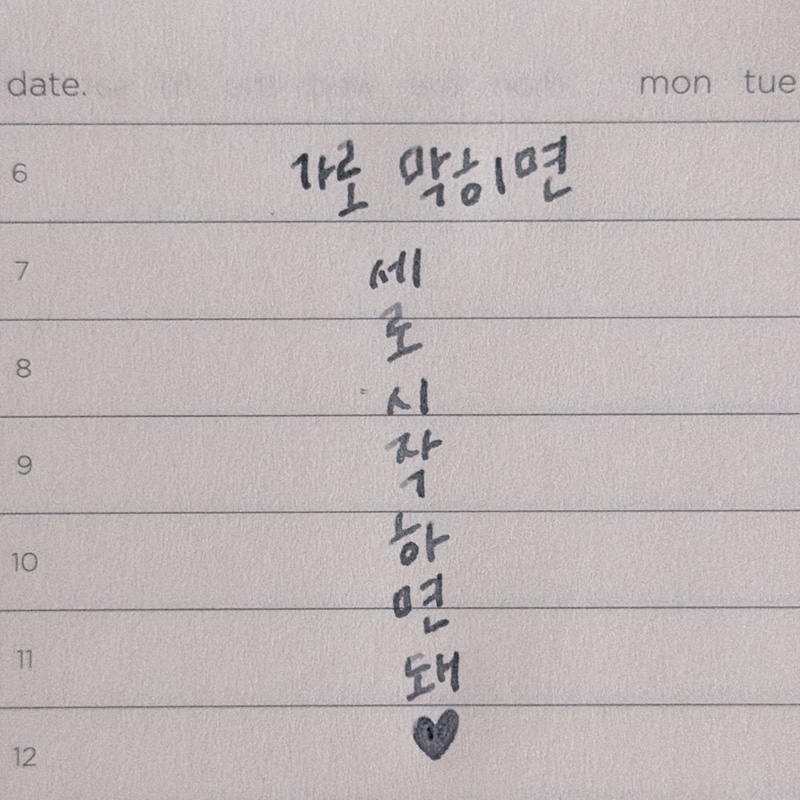 date. mon tue
6 가로 막히면
7 세
로
8
시
9 작
하
10
면
11 돼
♥
12